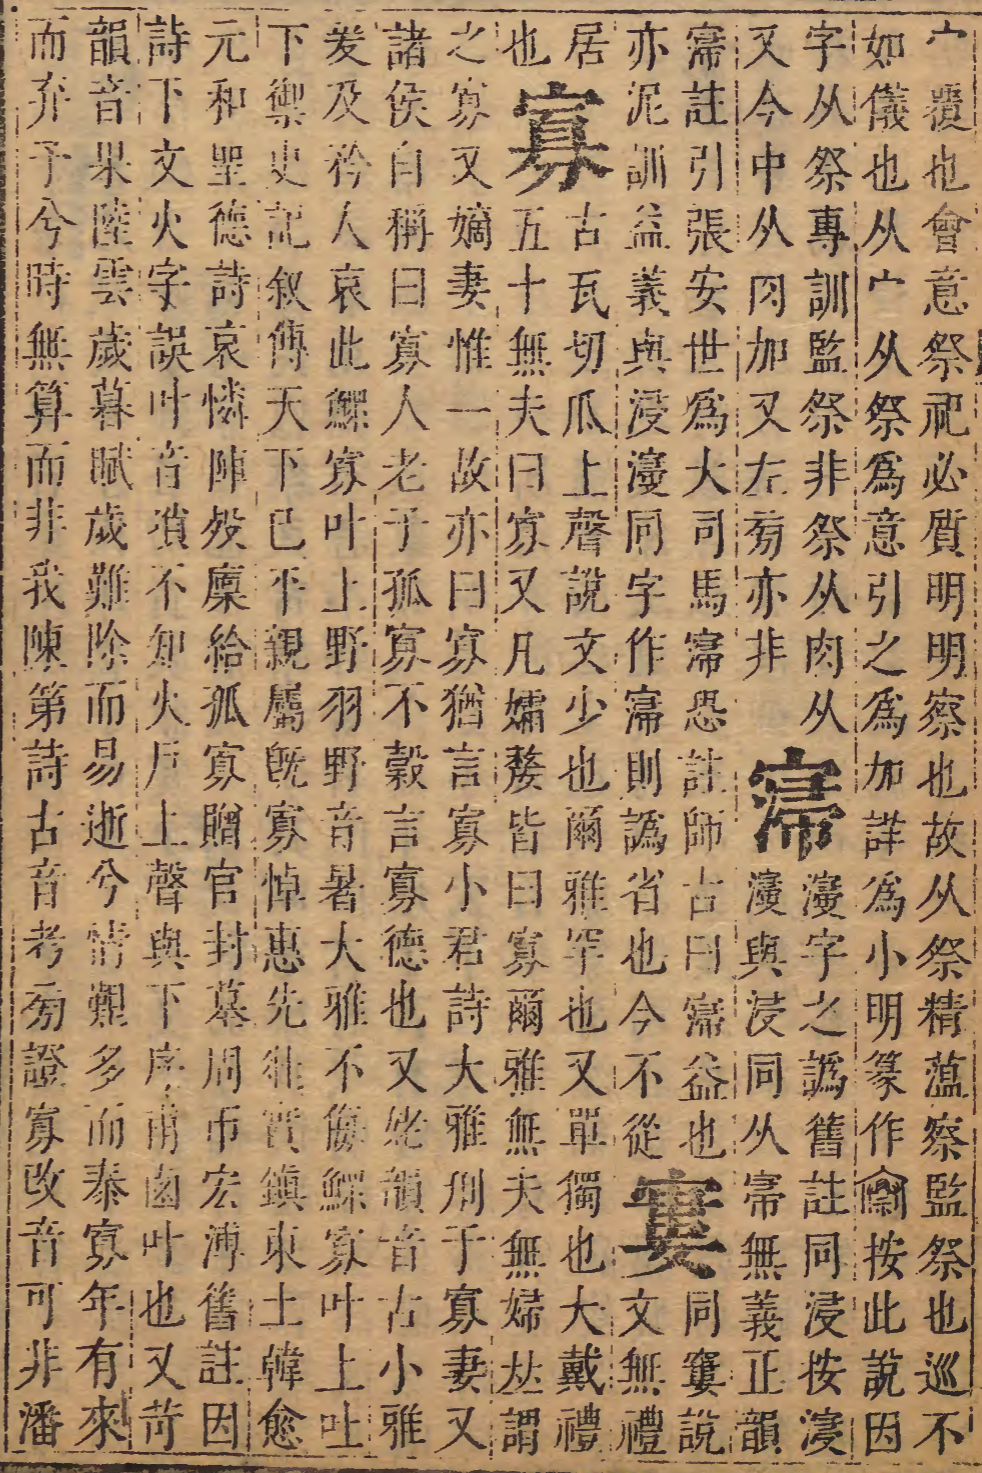 宀覆也會意祭祀必質明明察也故从祭精薀察監祭也巡不
如儀也从宀从祭為意引之為加詳為小明篆作按此說因
字从祭專訓監祭非祭从肉从寖字之譌舊註同浸按寖
又今中从肉加又左㫄亦非𡪢寖與浸同从𡨦無義正韻
𡪢註引張安世為大司馬𡪢恐註師古曰𡪢益也同寠說
亦泥訓益義與浸寖同字作𡪢則譌省也今不從寠文無禮
居古瓦切瓜上聲說文少也爾雅罕也又單獨也大戴禮
也寡五十無夫曰寡又凡孀嫠皆曰寡爾雅無夫無婦𠀤謂
之寡又嫡妻惟一故亦曰寡猶言寡小君詩大雅刑于寡妻又
諸侯自稱曰寡人老子孤寡不穀言寡德也又姥韻音古小雅
爰及矜人哀此鰥寡叶上野羽野音暑大雅不侮鰥寡叶上吐
下禦史記叙傳天下已平親屬旣寡悼惠先壯實鎮東土韓愈
元和聖德詩哀憐陣歿廩給孤寡贈官封墓周帀宏溥舊註因
詩下文火字誤叶音𤨏不知火戶上聲與下序甫鹵叶也又苛
韻音果陸雲歲暮賦歲難除而易逝兮情艱多而泰寡年有來
而弃予兮時無算而非我陳第詩古音考㫄證寡改音可非潘